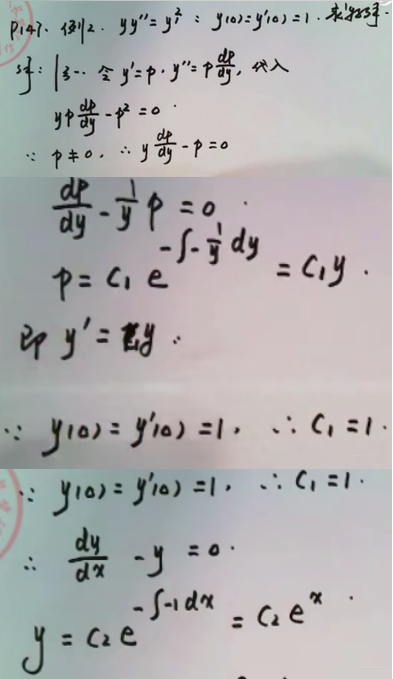 P147. 例12. yy''=y'²: y(0)=y'(0)=1. 求特解.
解: 法一. 令 y'=p. y''=p dp/dy, 代入
yp dp/dy - p² = 0
∵ p≠0, ∴ y dp/dy - p = 0
dp/dy - 1/y p = 0.
p = C₁ e^(-∫-1/y dy) = C₁y.
即 y' = C₁y.
∵ y(0) = y'(0) = 1, ∴ C₁ = 1.
∵ y(0) = y'(0) = 1, ∴ C₁ = 1.
∴ dy/dx - y = 0.
y = C₂ e^(-∫-1dx) = C₂ eˣ.